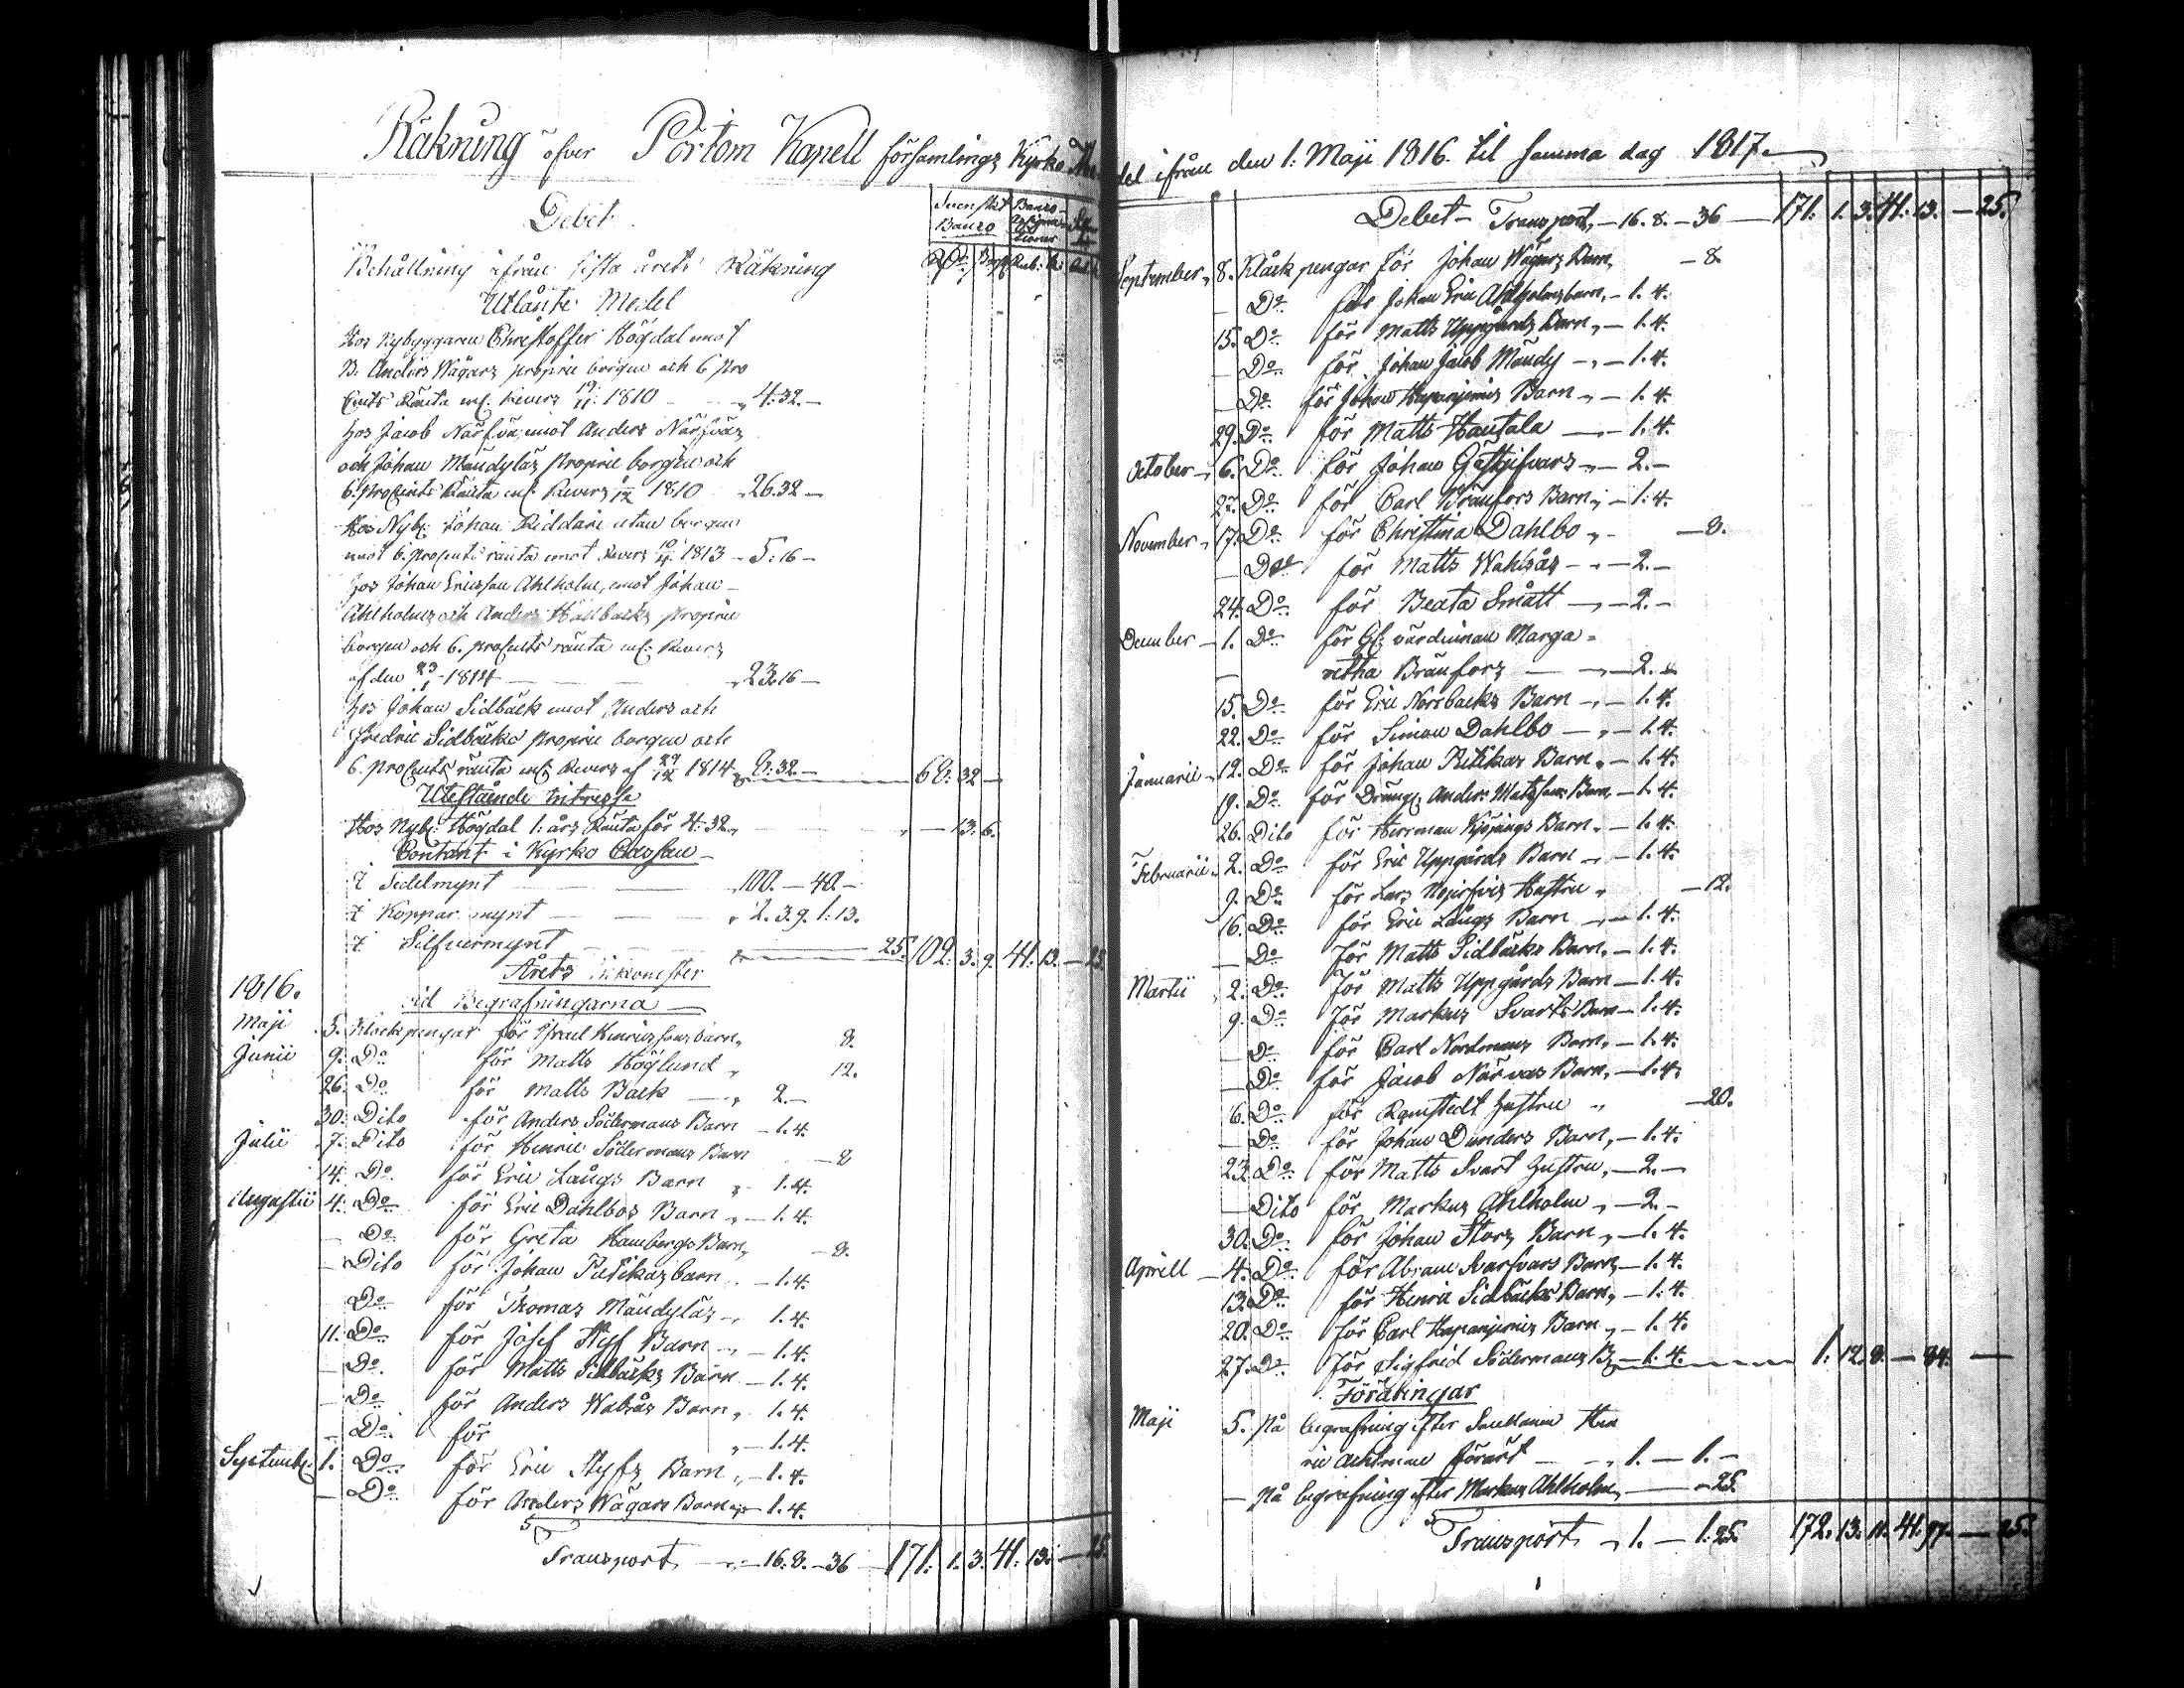 Räkning öfver Pörtom Kapell församlings Kyrko Me
Debet
Svenskt Banco
Banco
Behållning ifrån sista årets Räkning
Utlånte Medel
Hos Nybyggaren Christoffer Högdal emot
B. Anders Wägars proprie borgen och 6 pro
Cents Ränta enl. Revers 19/11 1810 — 4:32.—
hos Jacob Närfvä emot Anders Närfväs
och Johan Mäudyläs proprie borgen och
6. proCents Ränta enl. Revers 1810 — 26.32 —
Hos Nyb. Johan Riddare utan borgen
emot 6. proCents ränta emot Revers 1813 — 5:16 —
hos Johan Ericsson Ahlholm, emot Johan
Ahlholms och Anders Hällbacks proprie
borgen och 6. proCents ränta enl. Revers
af den 23/1 1814 — 23.16 —
hos Johan Sidbäck emot Anders och
Fredric Sidbäcks proprie borgen och
6. proCents ränta enl. Revers af 29/12 1814 — 8:32 — 68. 32 —
Uteståendе Intresse
Hos Nyb. Högdal 1: års Ränta för 4:32 — 13. 6.
Contant i Kyrko Cassan
I Sedelmynt — 100. — 40. —
I Koppar mynt — 2. 3. 9. 1: 13.
I Silfvermynt — 25. 102. 3. 9. 41. 13. — 25
Årets Inkomster
1816.
vid Begrafningarna
Maji 5. Klockpengar för Israel Henricssons barn 8.
Junii 9. Do för Matts Höglund 12.
26. Do för Matts Back — 2. —
30. Dito för Anders Södermans Barn — 1. 4.
Julii 7. Dito för Henric Södermans Barn — 8
14. Do för Eric Långs Barn — 1. 4.
Augustii 4. Do för Eric Dahlbos Barn — 1. 4.
— Do för Greta Hambergs Barn — 8.
— Dito för Johan Pitikas barn — 1. 4.
Do för Thomas Mäudyläs — 1. 4.
11. Do för Josef Styf Barn — 1. 4.
— Do för Matts Sidbäcks Barn — 1. 4.
— Do för Anders Wahsås Barn 1. 4.
— Do för — 1. 4.
Septemb. 1. Do för Eric Styfs Barn — 1. 4.
— Do för Anders Wägars Barn — 1. 4.
Transport — 16. 8. — 36 — 171. 1. 3. 41. 13. — 25.
del ifrån den 1: Maji 1816. til samma dag 1817.
Debet — Transport — 16. 8. — 36 — 171. 1. 3. 41. 13. — 25.
September 8. Klåck pengar för Johan Wägars Barn — 8.
— Do för Johan Eric Ahlholms barn — 1. 4.
15. Do för Matts Uppgårds Barn — 1. 4.
— Do för Johan Jacob Mäudy — 1. 4.
— Do för Johan Hapanjemis Barn — 1. 4.
29. Do för Matts Hautala — 1. 4.
October 6. Do för Johan Gästgifvars — 2. —
27. Do för Carl Bränfors Barn — 1: 4.
November 17. Do för Christina Dahlbo — 8.
— Do för Matts Wahsås — 2. —
24. Do för Beata Smått — 2. —
December 1. Do för Gf. värdinnan Marga-
retha Bränfors — 2. —
15. Do för Eric Norrbacks Barn — 1. 4.
22. Do för Simon Dahlbo — 1. 4.
Januarii 12. Do för Johan Pitikas Barn — 1. 4.
19. Do för Dräng. Anders Matssons Barn — 1. 4.
26. Dito för Herrman Kjöpings Barn — 1. 4.
Februarii 2. Do för Eric Uppgårds Barn — 1. 4.
9. Do för Lars Hustru — 12.
16. Do för Eric Långs Barn — 1. 4.
— Do för Matts Sidbäcks Barn — 1. 4.
Martii 2. Do för Matts Uppgårds Barn — 1. 4.
9. Do för Markus Svarts Barn — 1. 4.
— Do för Carl Nordmans Barn — 1. 4.
— Do för Jacob Närvas Barn — 1. 4.
16. Do för Ramstedt hustru — 20.
— Do för Johan Dunders Barn — 1. 4.
23. Do för Matts Svart hustru — 2. —
— Dito för Markus Ahlholm — 2. —
30. Do för Johan Stors Barn — 1. 4.
Aprill 4. Do för Abram Svarfvars Barn — 1. 4.
13. Do för Henric Sidbäcks Barn — 1. 4.
20. Do för Carl Hapanjemis Barn — 1. 4.
27. Do för Sigfrid Södermans B — 1. 4. — 1. 12 8. — 84. —
Föräringar
Maji 5. På begrafning efter Hen
ric förärt — 1. — 1. —
— På begrafning efter Markus Ahlholm — 25.
Transport — 1. — 1. 25. 172. 13. 11. 41. 97. — 25.